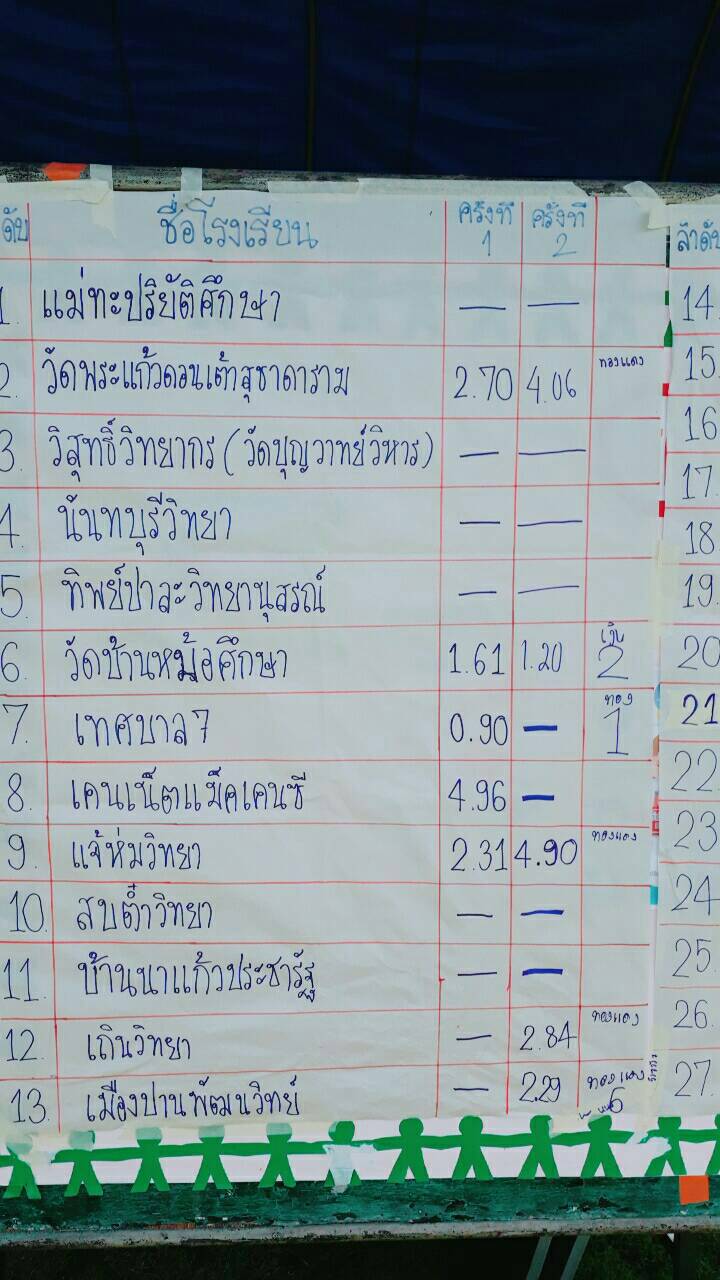 ดับ ชื่อโรงเรียน ครั้งที่ 1 ครั้งที่ 2 ลำดับ
1. แม่ทะปริยัติศึกษา — — 14.
2. วัดพระแก้วดอนเต้าสุชาดาราม 2.70 4.06 ทองแดง 15.
3. วิสุทธิ์วิทยากร (วัดบุญวาทย์วิหาร) — — 16
4. นันทบุรีวิทยา — — 17.
18.
5. ทิพย์ปาละวิทยานุสรณ์ — — 19.
6. วัดบ้านหม้อศึกษา 1.61 1.20 เงิน 2 20
7. เทศบาล 7 0.90 — ทอง 1 21
22.
8. เคนเน็ตแม็คเคนซี 4.96 —
9. แจ้ห่มวิทยา 2.31 4.90 ทองแดง 23
10. สบต๋ำวิทยา — — 24
11. บ้านนาแก้วประชารัฐ — — 25.
12. เถินวิทยา — 2.84 ทองแดง 26.
13. เมืองปานพัฒนวิทย์ — 2.29 ทองแดง 6 27.